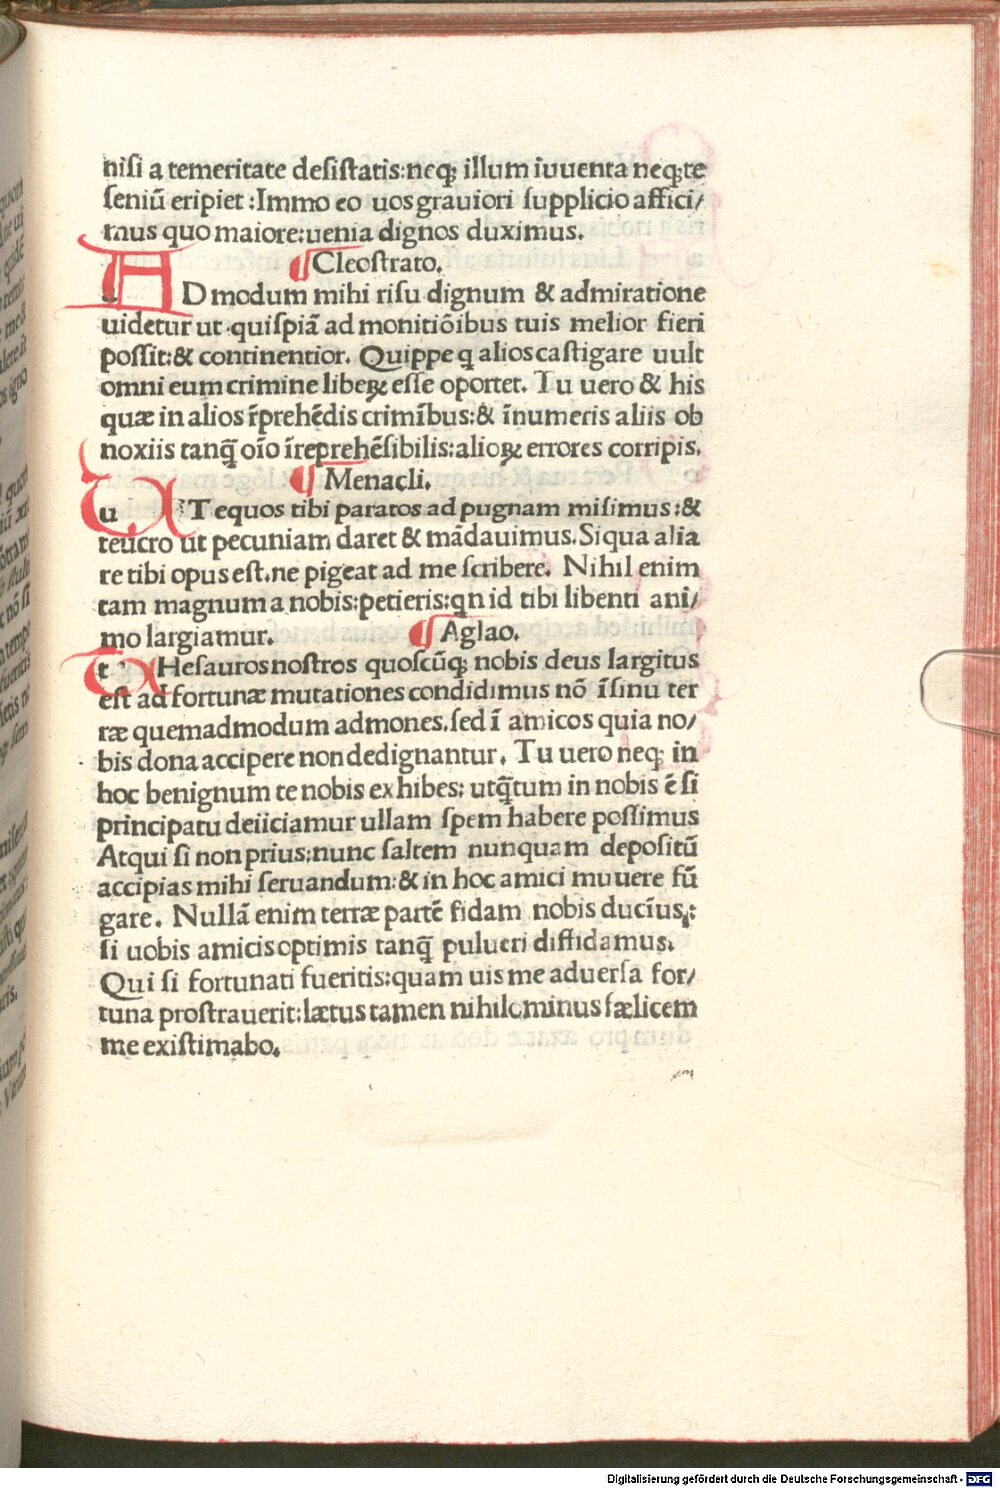 niſi a temeritate deſiſtatis:neq; illum iuuenta neq;te
ſeniū eripiet :Immo eo uos grauiori ſupplicio affici/
mus quo maiore:uenia dignos duximus.
¶Cleoſtrato.
AD modum mihi riſu dignum & admiratione
uidetur ut quiſpiā ad monitiōibus tuis melior fieri
poſſit:& continentior. Quippe q alios caſtigare uult
omni eum crimine liberꝝ eſſe oportet. Tu uero & his
quæ in alios r̄prehēdis crimībus:& īnumeris aliis ob
noxiis tanq̄ oīo īreprehēſibilis:alioꝝ errores corripis.
¶Menacli.
uT equos tibi paratos ad pugnam miſimus:&
teucro ut pecuniam daret & mādauimus.Siqua alia
re tibi opus eſt.ne pigeat ad me ſcribere. Nihil enim
tam magnum a nobis:petieris:qn id tibi libenti ani/
mo largiamur.
¶Aglao.
tHeſauros noſtros quoſcūq; nobis deus largitus
eſt ad fortunæ mutationes condidimus nō īſinu ter
ræ quemadmodum admones.ſed ī amicos quia no/
bis dona accipere non dedignantur. Tu uero neq; in
hoc benignum te nobis exhibes: utq̄tum in nobis ē ſi
principatu deiiciamur ullam ſpem habere poſſimus
Atqui ſi non prius:nunc ſaltem nunquam depoſitū
accipias mihi ſeruandum:& in hoc amici muuere fū
gare. Nullā enim terræ partē fidam nobis ducīus,:
ſi uobis amicis optimis tanq̄ pulueri diffidamus.
Qui ſi fortunati fueritis:quam uis me aduerſa for/
tuna proſtrauerit:lætus tamen nihilominus fælicem
me exiſtimabo.
Digitalisierung gefördert durch die Deutsche Forschungsgemeinschaft - DFG